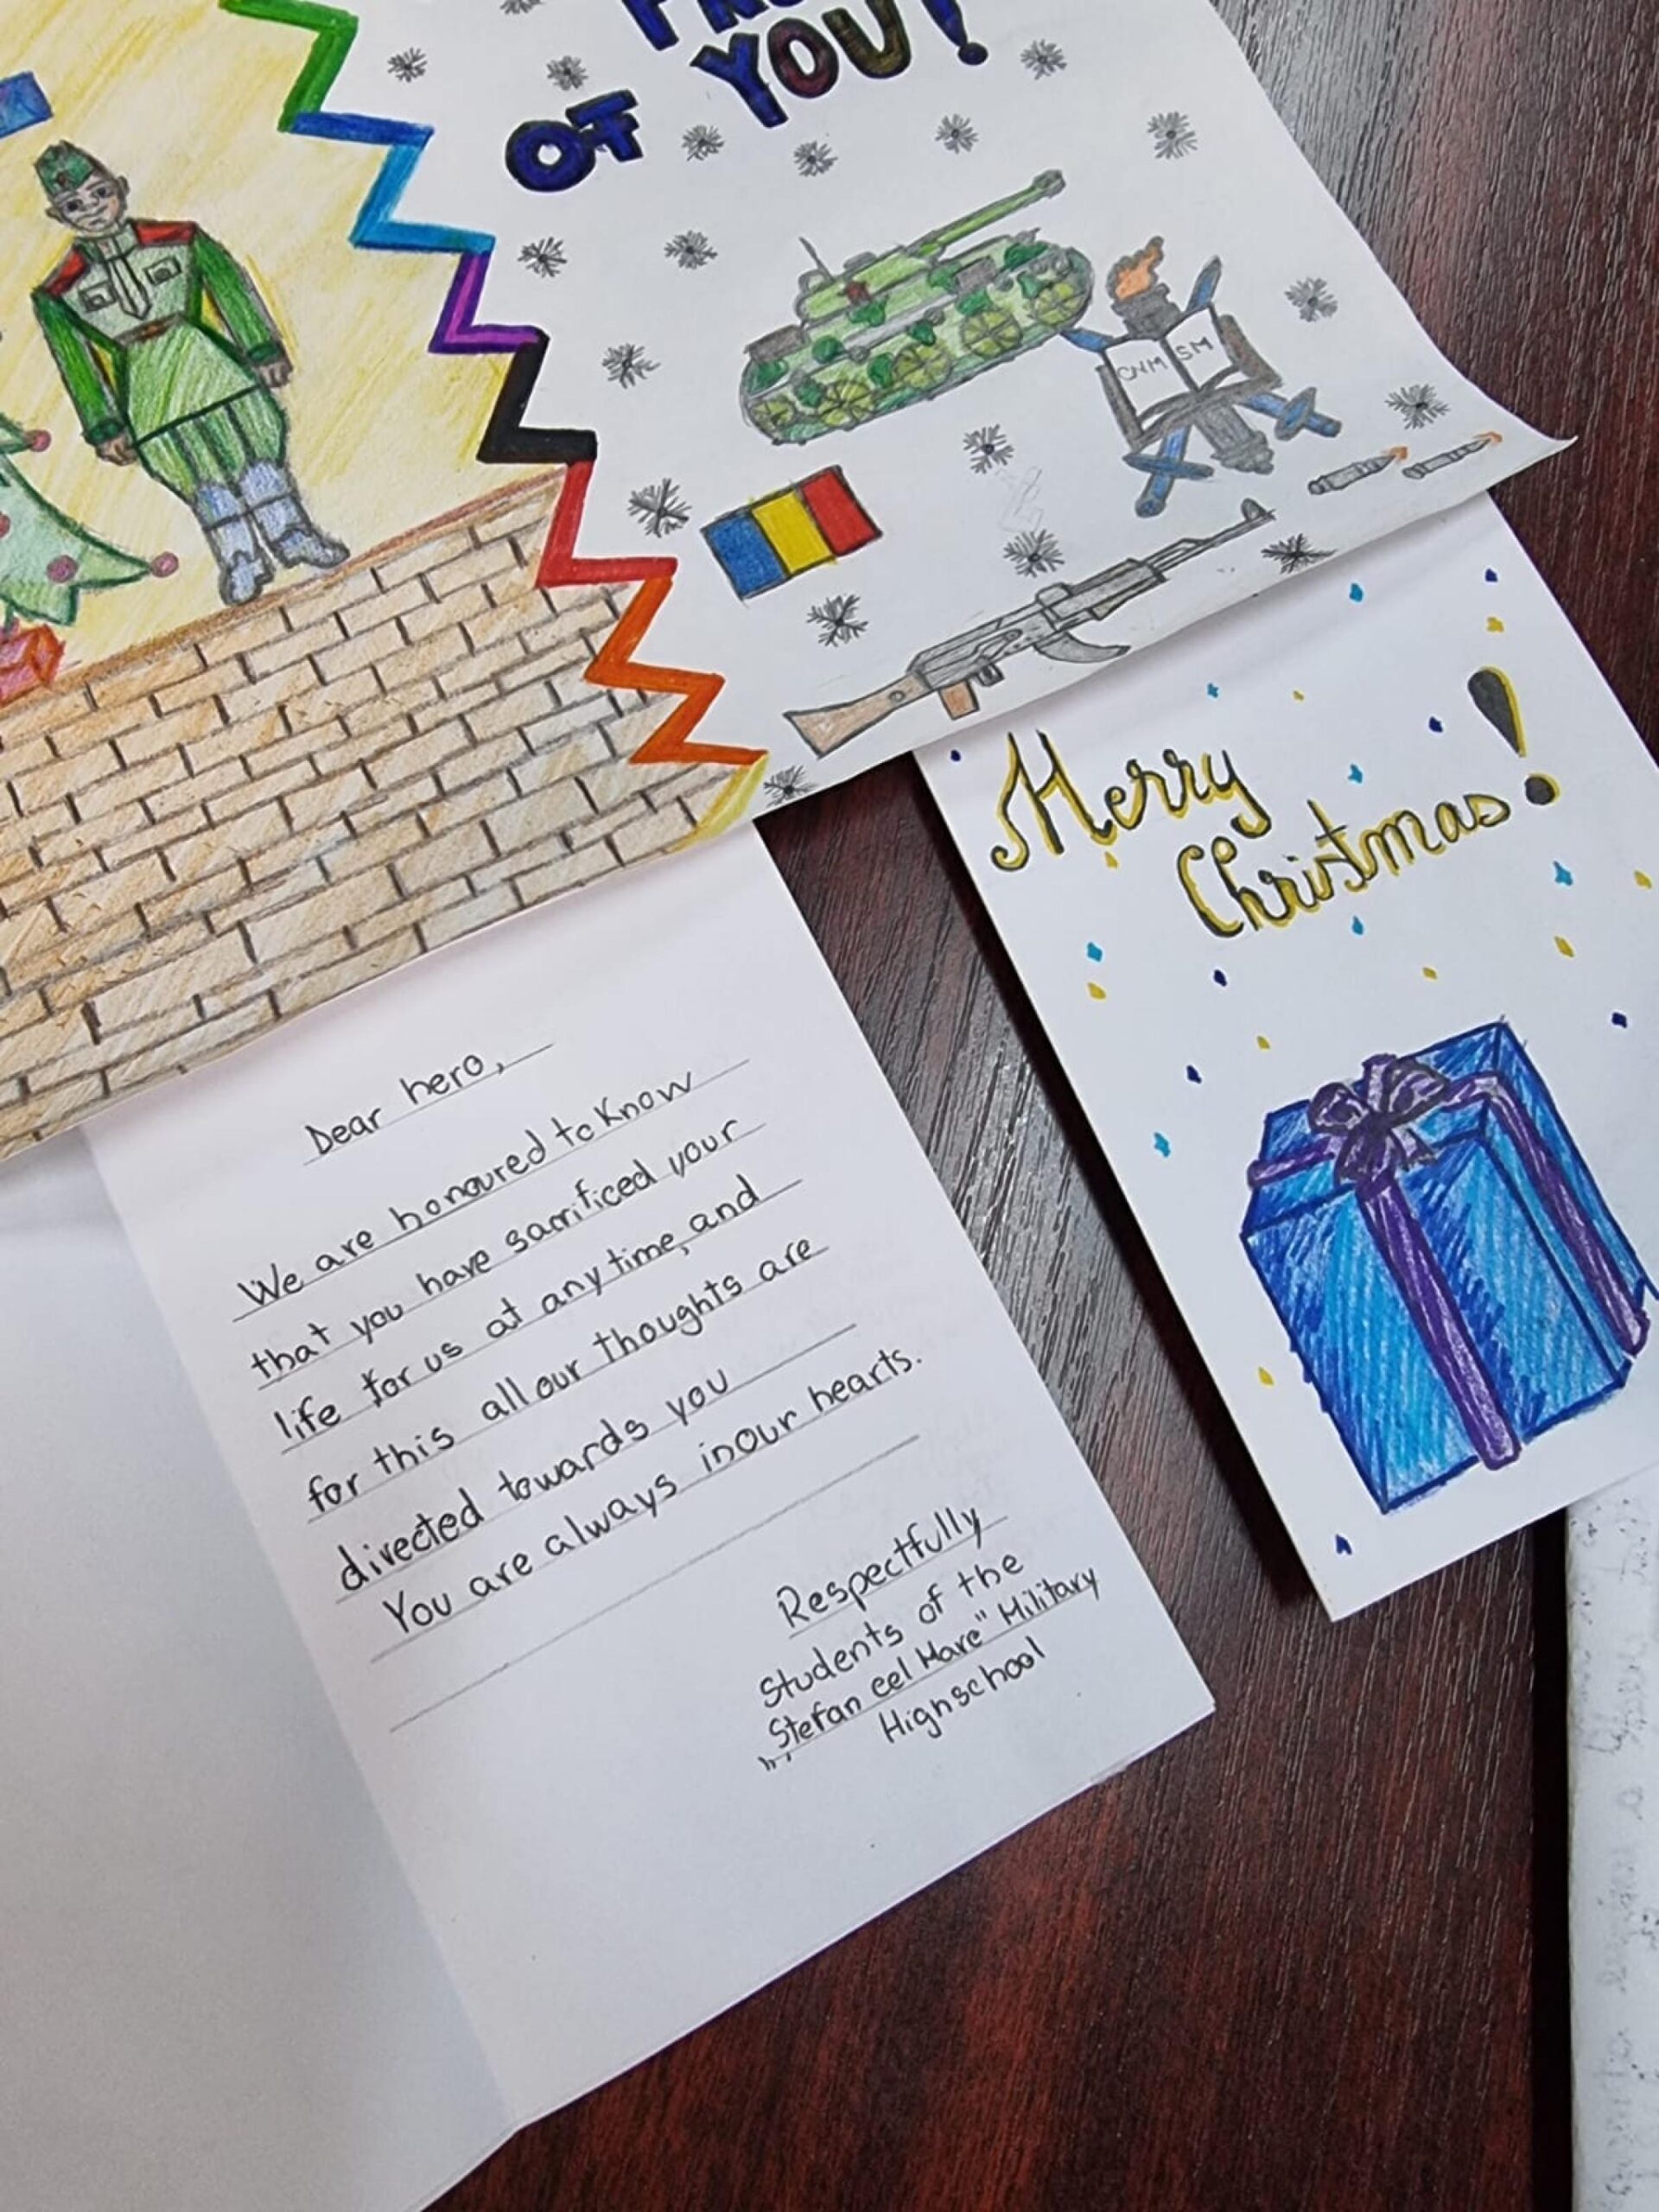 OF YOU!
CNM SM
Merry
Christmas!
Dear hero,
We are honoured to know
that you have sacrificed your
life for us at any time, and
for this all our thoughts are
directed towards you
You are always in our hearts.
Respectfully
Students of the
„Stefan cel Mare" Military
Highschool